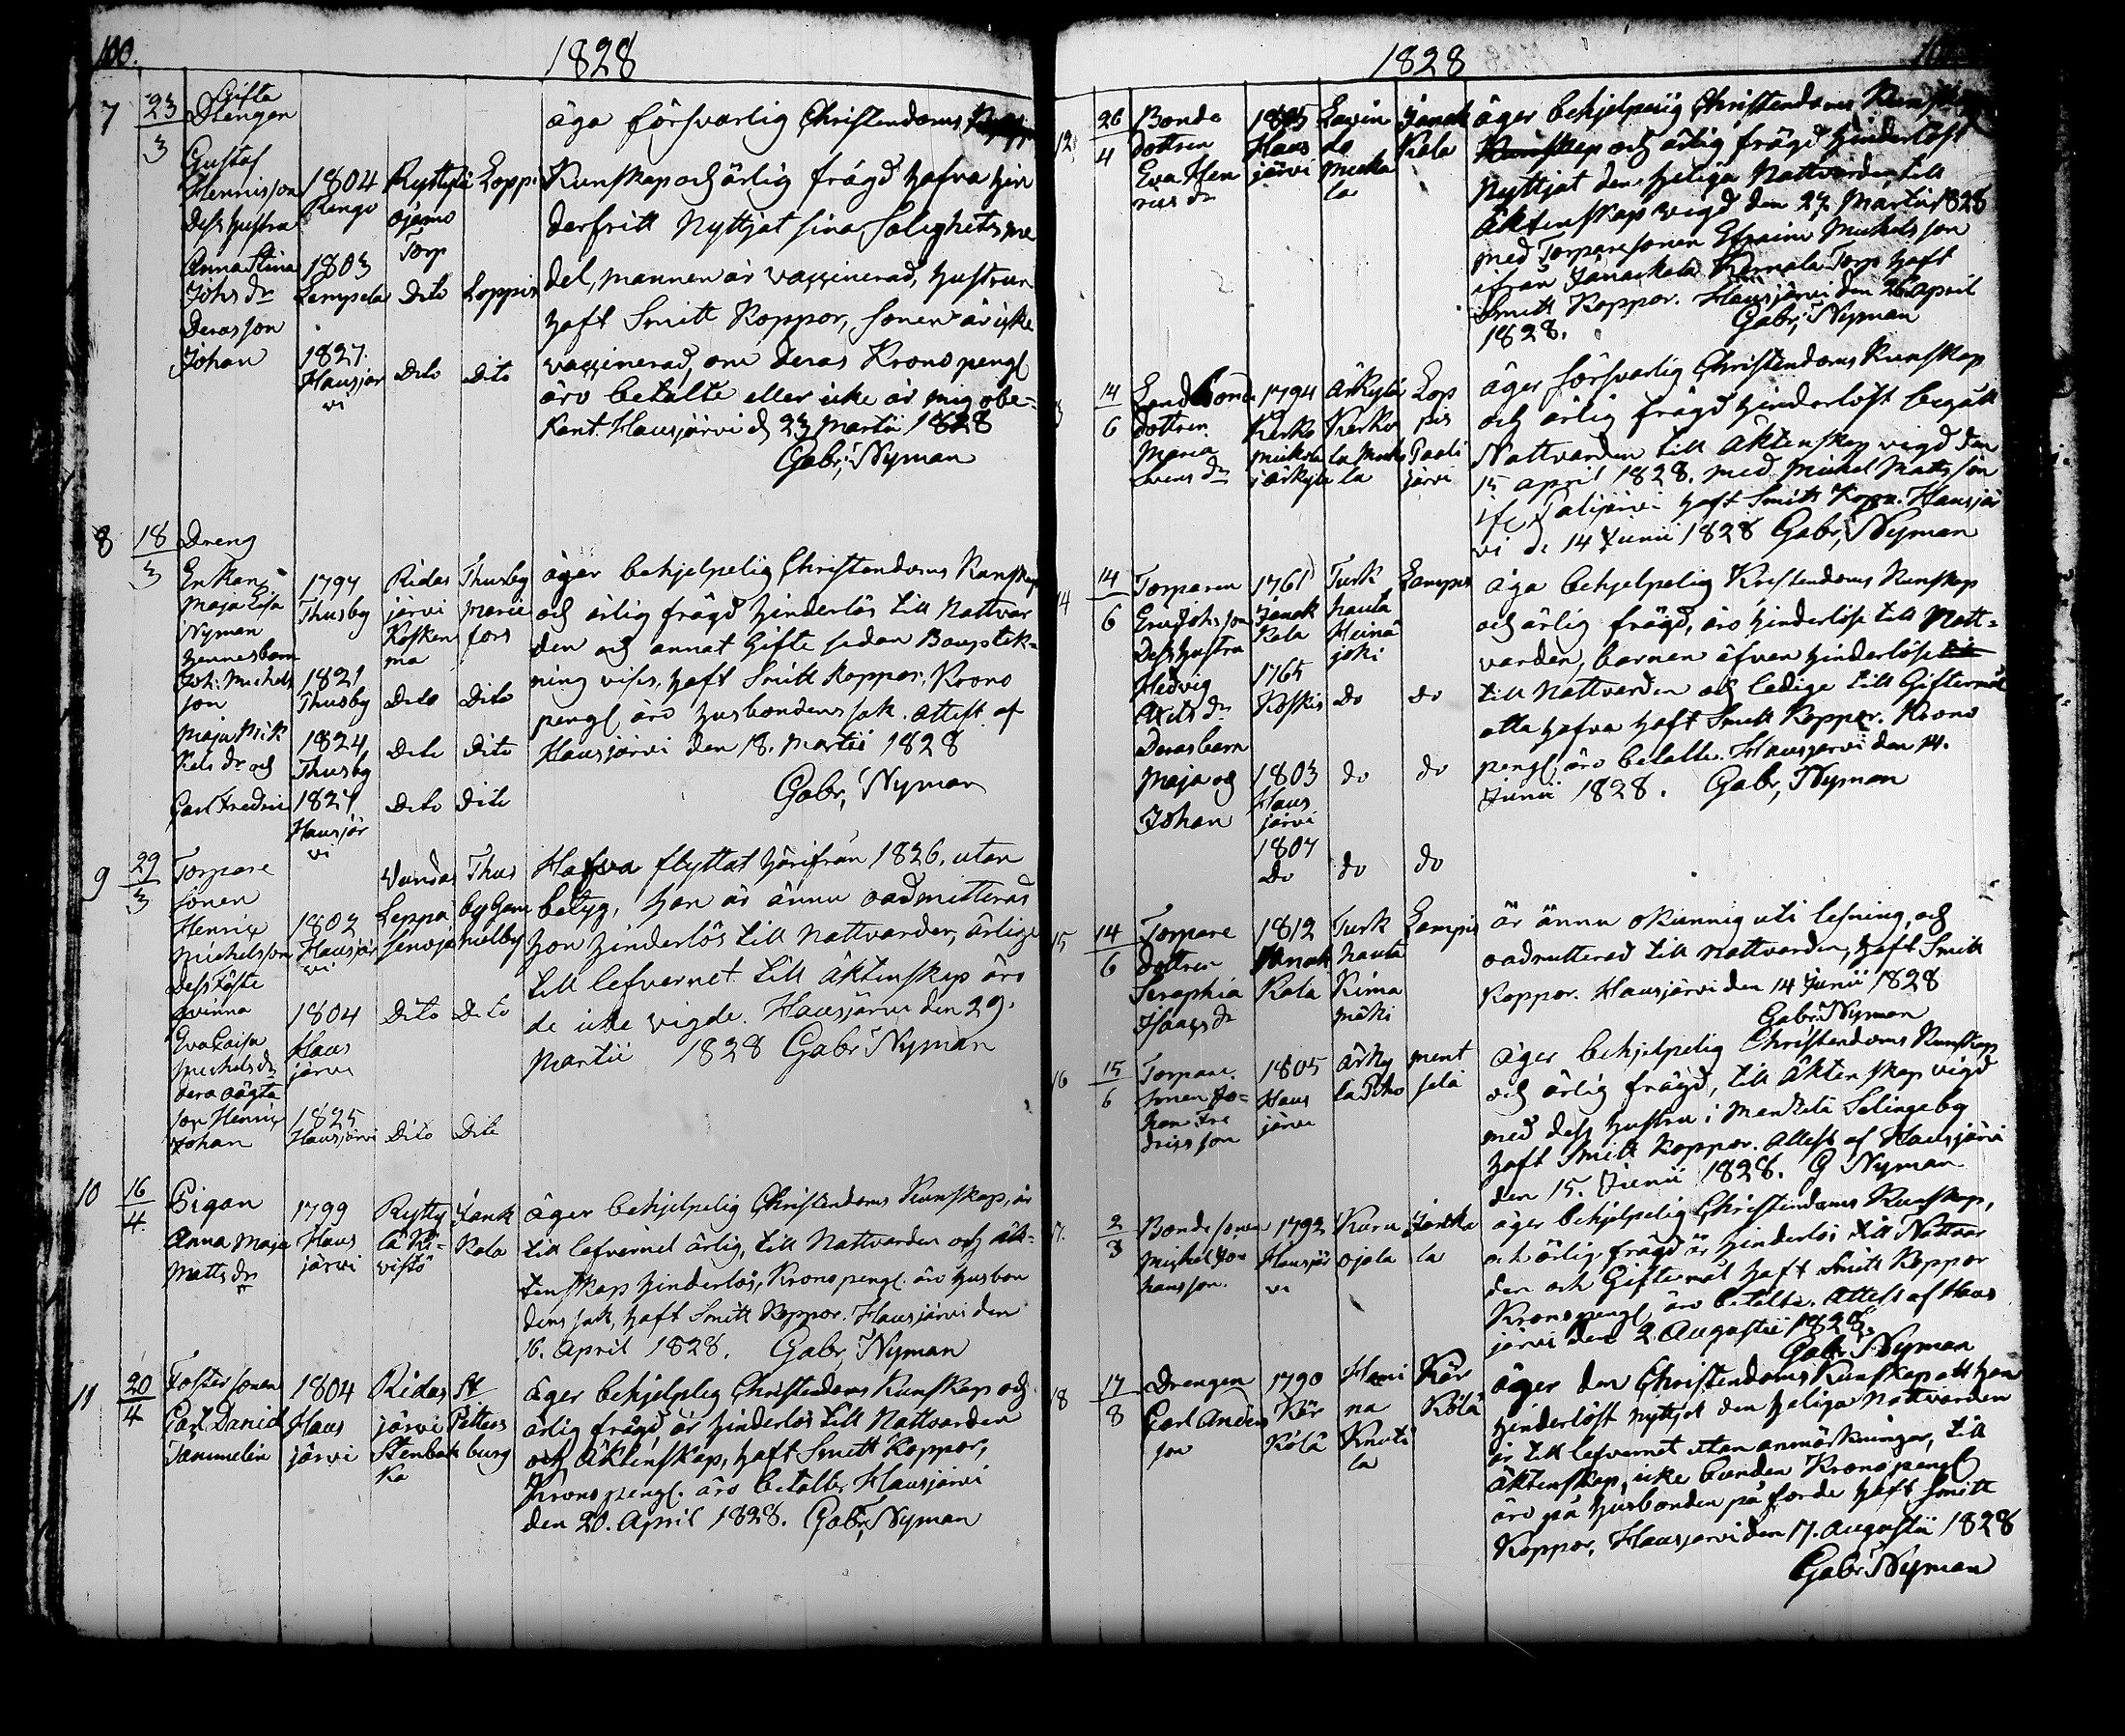 100.
1828
7 23/3 Gifta
Drengen
Gustaf
Henricsson
Dess hustru
Anna Stina
Johs dr
Deras son
Johan
1804
Rengo
1803
Lampela
1827.
Hausjär
vi
Ryttylä
ojamo
Torp
Dito
Dito
Loppis
Loppis
Dito
äga försvarlig Christendoms
Kunskap och ärlig frägd hafva hin
derfritt Nyttjat sina Salighets me
del, mannen är vaxxinerad, hustrun
haft Smitt Koppor, sonen är icke
vaxxinerad, om deras Krono pengl
äro betalte eller icke är mig obe-
kant. Hausjärvi d 23 Martii 1828
Gabr, Nyman
8 18/3 Dreng
Enkan
Maja Lisa
Nyman
hennes barn
Joh: Michels
son
Maja Mik
kels dr och
Carl Fredric
1794
Thusby
1821
Thusby
1824
Thusby
1827
Hausjär
vi
Ridas
järvi
Kosken
ma
Dito
Dito
Dito
Thusby
Marie
fors
Dito
Dito
Dito
äger behjelpelig Christendoms Kunskap
och ärlig frägd hinderlös till Nattvar
den och annat Gifte sedan Bouptek-
ning vises, haft Smitt Koppor, Krono
pengl äro husbondens sak. Attest af
Hausjärvi den 18. Martii 1828
Gabr, Nyman
9 29/3 Torpare
sonen
Henric
Michelsson
Dess Fäste
qvinna
Eva Caisa
Michels dr
dera oägta
son Henric
Johan
1803
Hausjär
vi
1804
Haus
järvi
1825
Hausjärvi
Vandas
Leppä
senoja
Dito
Dito
Thus
by Gam
melby
Dito
Dito
Hafva flyttat härifrån 1826. utan
betyg, han är ännu oadmitterad
hon hinderlös till Nattvarden, ärlige
till lefvernet till Äktenskap äro
de icke vigde. Hausjärvi den 29.
Martii 1828 Gabr Nyman
10 16/4 Pigan
Anna Maja
Matts dr
1799
Haus
järvi
Rytty
lä Ki-
vistö
Janak
Kala
äger behjelpelig Christendoms Kunskap, är
till lefvernet ärlig, till Nattvarden och äk-
tenskap hinderlös, Krono pengl. äro husbon
dens sak, haft Smitt Koppor. Hausjärvi den
16. April 1828. Gabr, Nyman
11 20/4 Fostersonen
Carl Daniel
Tammelin
1804
Haus
järvi
Ridas
järvi
Stenbak
ka
St
Petters
burg
äger behjelplig Christendoms Kunskap och
ärlig frägd, är hinderlös till Nattvarden
och Äktenskap, haft Smitt Koppor,
Krono pengl. äro betalte. Hausjärvi
den 20. April 1828. Gabr, Nyman
1828
12 26/4 Bonde
dottren
Eva Hen
rics dr
Haus
järvi
Lavin
do
Mickä
la
Janak
Kala
äger behjelpelig Christendoms Kunskap
och ärlig frägd hinderlöst
Nyttjat den heliga Nattvarden till
Äktenskap vigd den 27 Martii 1828
med Torpare sonen Efraim Michelsson
ifrån Janackala Kernala Torp haft
Smitt Koppor. Hausjärvi den 26 April
1828. Gabr, Nyman
14/6 Landbonde
dottren
Maria
Svens dr
1794
Kerko
Mickola
i Ärkylä
Ärkylä
Kerko
la Mick
la
Lop
pis
Tali
järvi
äger försvarlig Christendoms Kunskap
och ärlig frägd hinderlöst begått
Nattvarden till Äktenskap vigd den
15 April 1828. med Michel Mattsson
ifr Talijärvi haft Smitt Kopp. Hausjär
vi d. 14 Junii 1828 Gabr, Nyman
14 14/6 Torparen
Eric Johsson
Dess hustru
Hedvig
Axels dr
Deras barn
Maja och
Johan
1761
Janak
Kala
1765
Koskis
1803
Haus
järvi
1807
Do
Turk
hauta
Heinä
joki
do
do
do
Lampis
do
do
do
äga behjelpelig Kristendoms Kunskap
och ärlig frägd, äro hinderlöse till Natt-
varden, barnen äfven hinderlöse
till Nattvarden och ledige till Giftermål
alla hafva haft Smitt Koppor. Krono
pengl, äro betalte. Hausjärvi den 14.
Junii 1828. Gabr, Nyman
15 14/6 Torpare
dottren
Seraphia
Isaacs dr
1812
Janak
Kala
Turk
hauta
Kima
mäki
Lampis
är ännu okunnig uti lesning, och
oadmitterad till Nattvarden, haft Smitt
Koppor. Hausjärvi den 14 Junii 1828
Gabr. Nyman
16 15/6 Torpare
sonen Jo-
han Fre
dricsson
1805
Haus
järvi
Ärky
lä Toko
ment
selä
äger behjelpelig Christendoms Kunskap
och ärlig frägd, till Äktenskap vigd
med dess hustru i Mentzelä Sälingeby
haft Smitt Koppor. Attest af Hausjärvi
den 15. Junii 1828. G Nyman
17. 2/8 Bonde sonen
Michel Jo-
hansson.
1792
Hausjär
vi
Karu
ojala
Janaka
la
äger behjelpelig Christendoms Kunskap,
och ärlig frägd är hinderlös till Nattvar
den och Giftermål haft Smitt Koppor
Krono pengl, äro betalta. Attest af Haus
järvi den 2. Augustii 1828.
Gabr, Nyman
18 17/8 Drengen
Carl Anders
son
1790
Kär
kölä
Hami
na
Knuti
la
Kär
kölä
äger den Christendoms Kunskap att han
hinderlöst nyttjat den heliga Nattvarden
är till lefvernet utan anmärkningar, till
Äktenskap, icke bunden Krono pengl
äro på husbonden påförde haft Smitt
Koppor, Hausjärvi den 17. Augustii 1828
Gabr Nyman